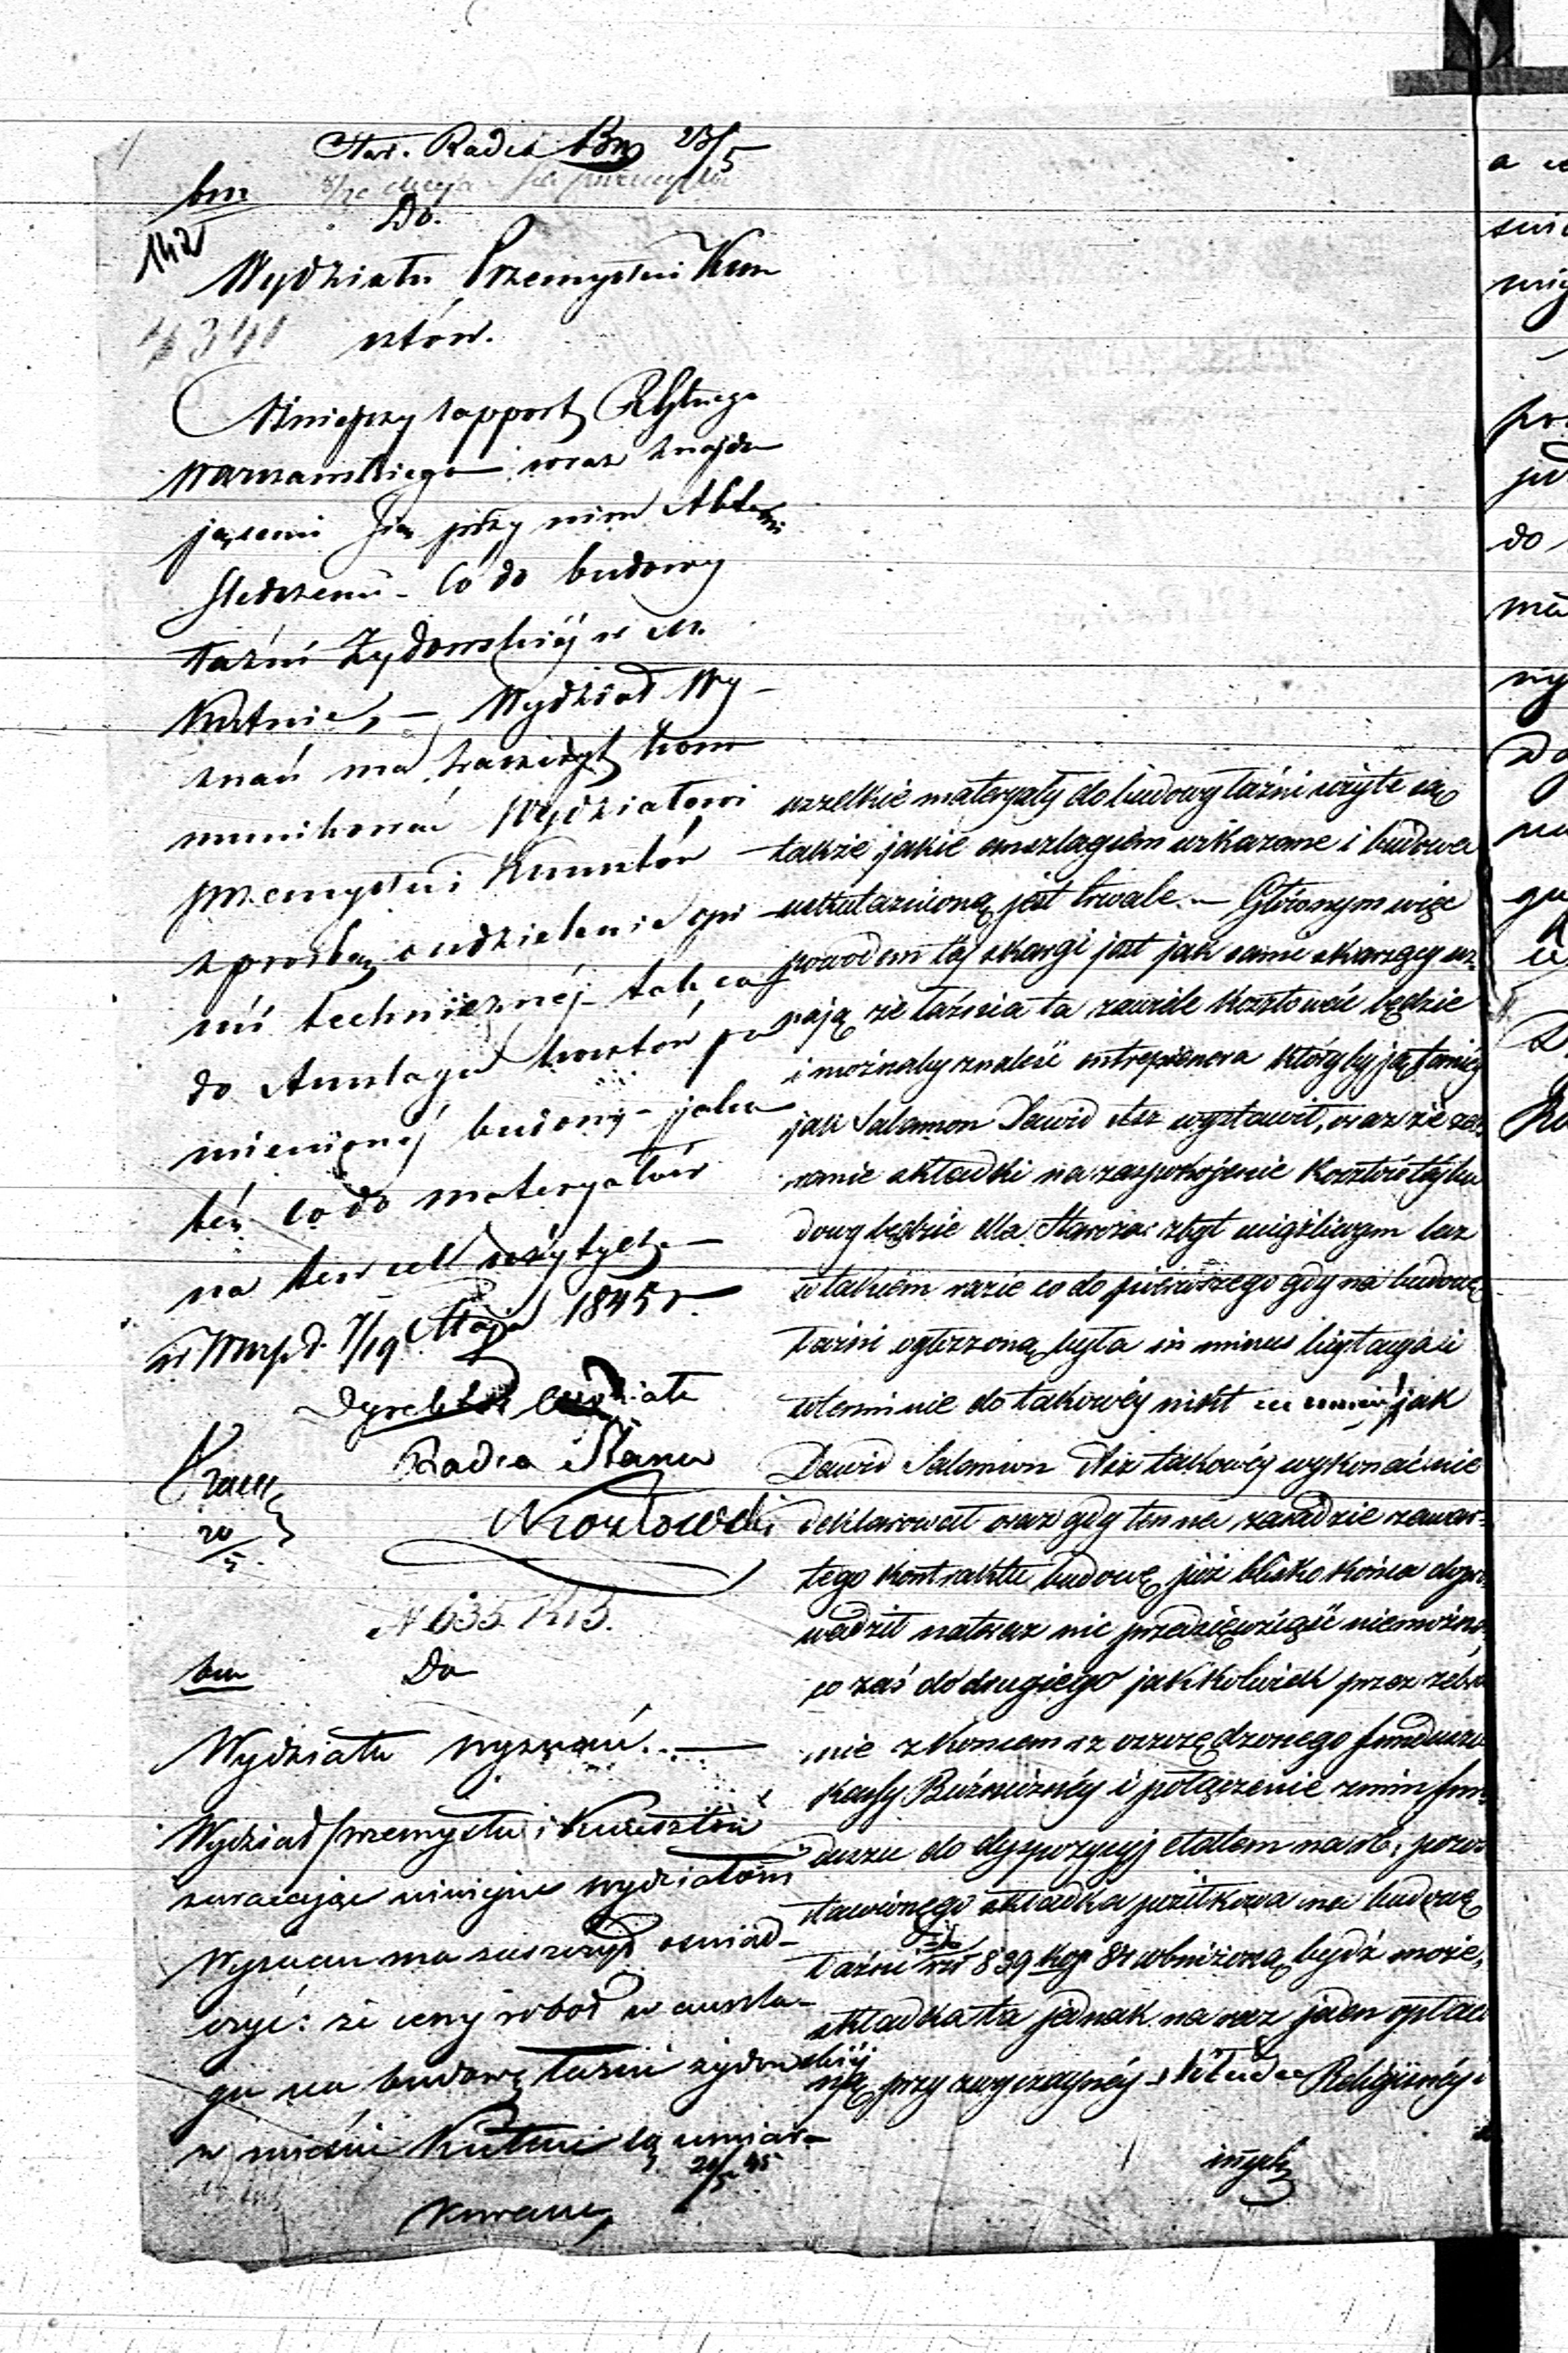 Radca 23/5
bm
Do.
142
Wydziału Przemysłu i Kun
sztów.
4341
Niniejszy rapport Rządu Gbnego
Warszawskiego wraz znajdu
jącemi się przy nim Aktami
śledczemi co do budowy
łaźni Żydowskiéj w M.
Kutnie, — Wydział Wy-
znań ma zaszczyt kom
munikować Wydziałowi
przemysłu i Kunsztów —
z prośbą o udzielenie opi-
nii technicznéj tak co
do Anszlagu kosztów po
mienionéj budowy — jako
téż co do materyałów
na ten cel użytych. —
w Warsz. d. 7/19 Maja 1845 r.
Dyrektor Wydziału
Radca Stanu
Kozłowski
20/5
N 635
bm Do
Wydziału Wyznań. —
Wydział przemysłu i Kunsztów
zwracając niniejsze wydziałowi
Wyznań ma zaszczyt oświad-
czyć: że ceny robót w anszla-
gu na budowę łaźni żydowskiéj
w mieście Kutnie są umiar-
kowane,
21/5 45
wszelkie materyały do budowy łaźni użyte są
także jakie anszlagiem wskazane i budowa
uskutecznioną jest trwale. — Głównym więc
powodem téj skargi jest jak sami skarżący
że łaźnia ta zawiele kosztować będzie
i możnaby znaleść entreprenera któryby ją taniéj
jak Salamon Dawid Asz wystawił, oraz że
składki na zaspokojenie kosztów téj bu
dowy będzie dla Starozac zbyt uciążliwym lecz
w takiem razie co do pierwszego gdy na budowę
łaźni ogłoszoną była in minus licytacya i
w terminie do takowéj nikt jak
Dawid Salamon Asz takowéj wykonać nie
deklarował oraz gdy ten na zasadzie zawar-
tego kontraktu budowę już blisko końca dopro
wadził nateraz nic przedsięwziąść niemożna,
co zaś do drugiego jakkolwiek przez zebra
nie z końcem oszczędzonego funduszu
kassy Bóżniczéj i połączenie z nim fun-
duszu do dyspozycyi etatem na r. b. pozo
stawionego składka pożitkowa na budowę
łaźni rsr 839 kop 87 obniżoną bydź może,
składka ta jednak na raz jeden opłaco
na przy zwyczajnéj składce Religijnéj i
innych